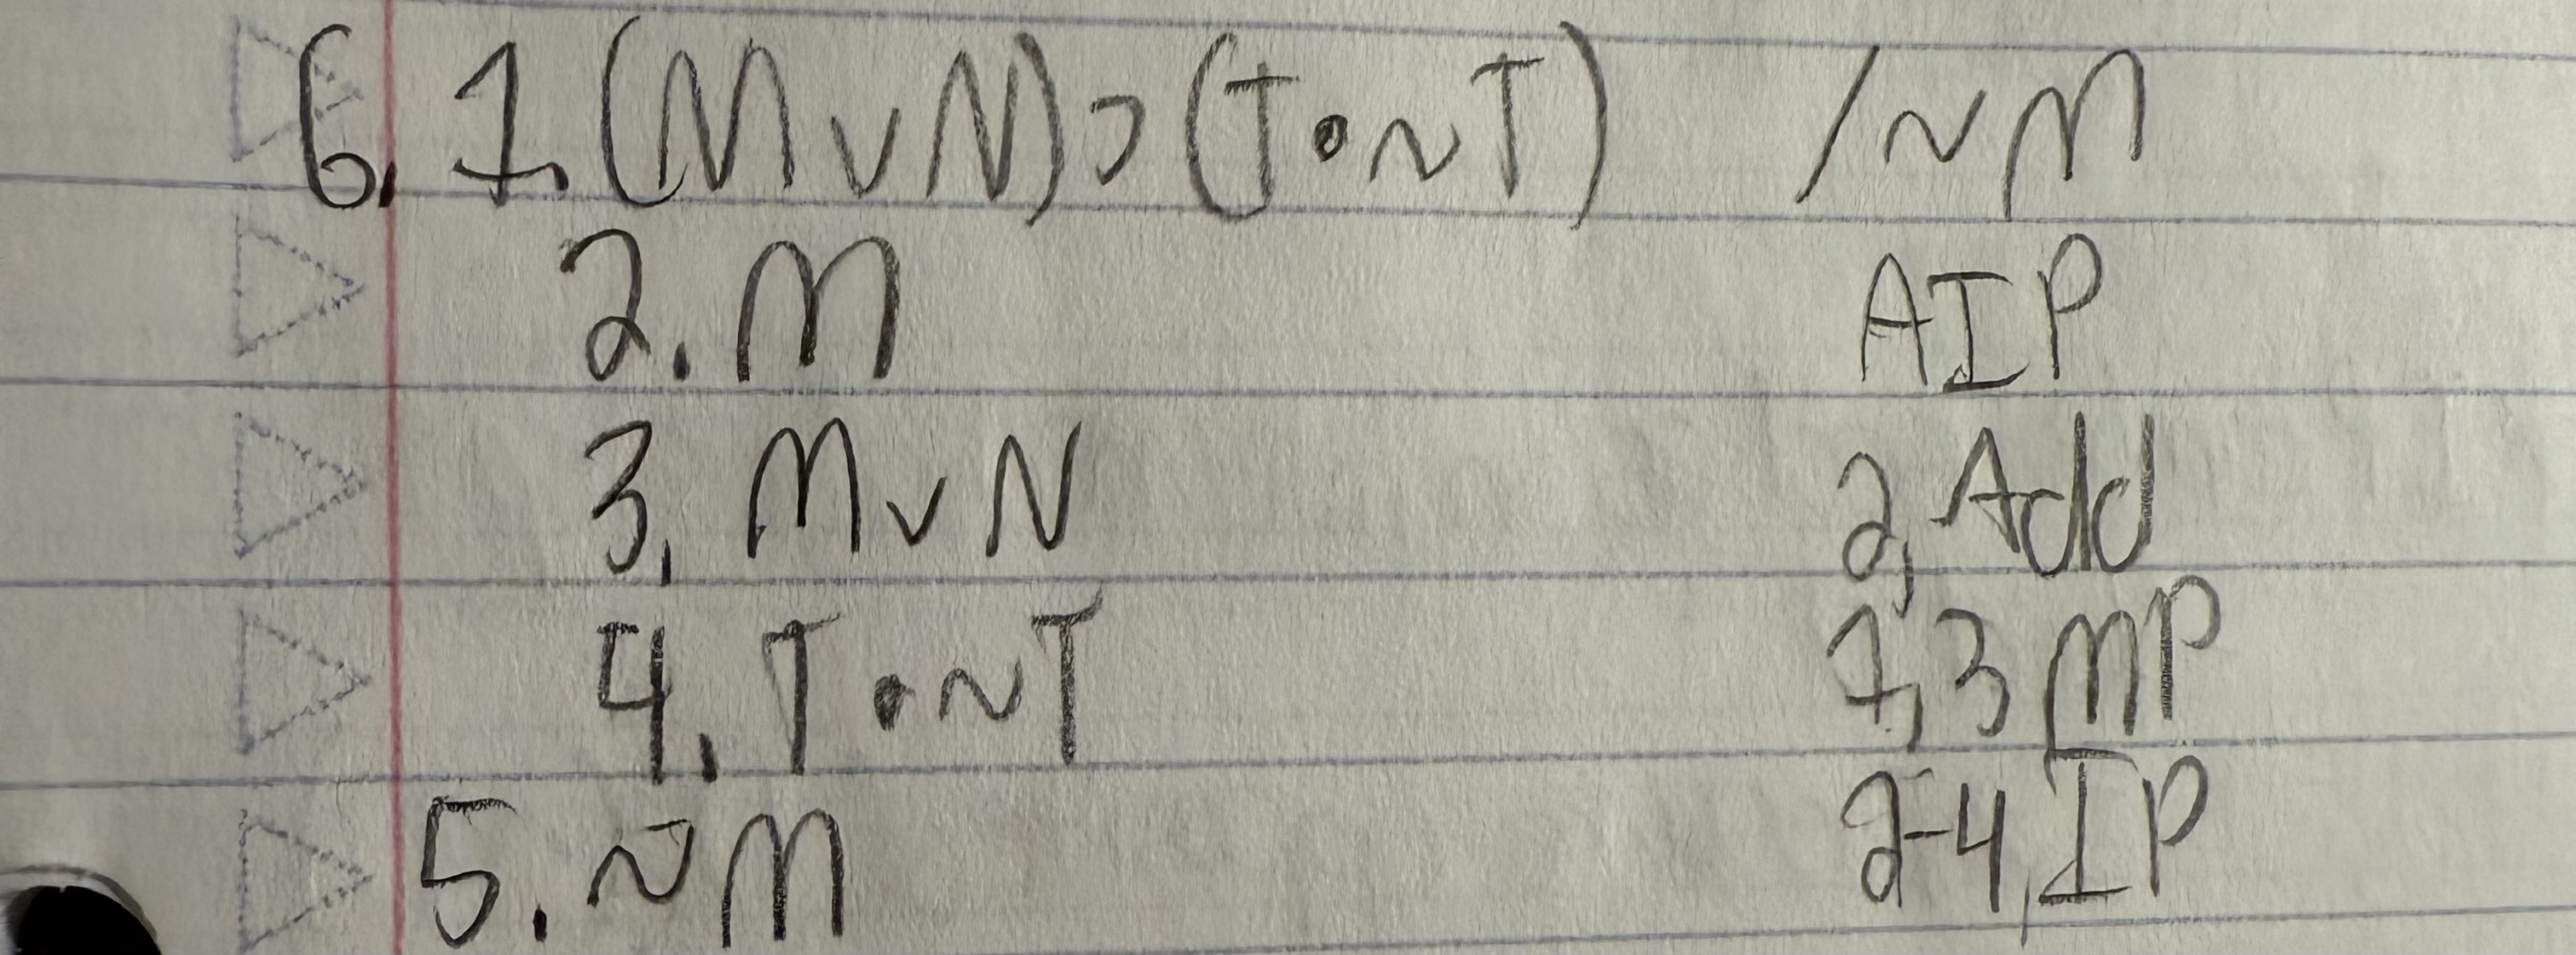 6. 1. (M v N) ⊃ (T • ~T) / ~M
2. M AIP
3. M v N 2, Add
4. T • ~T 1, 3 MP
5. ~M 2-4, IP